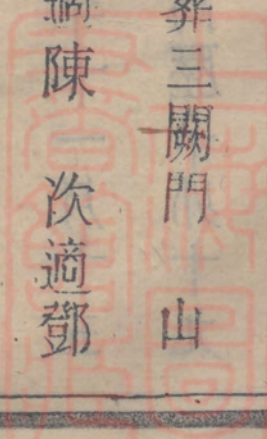 葬三闕門　山
適陳　次適鄧